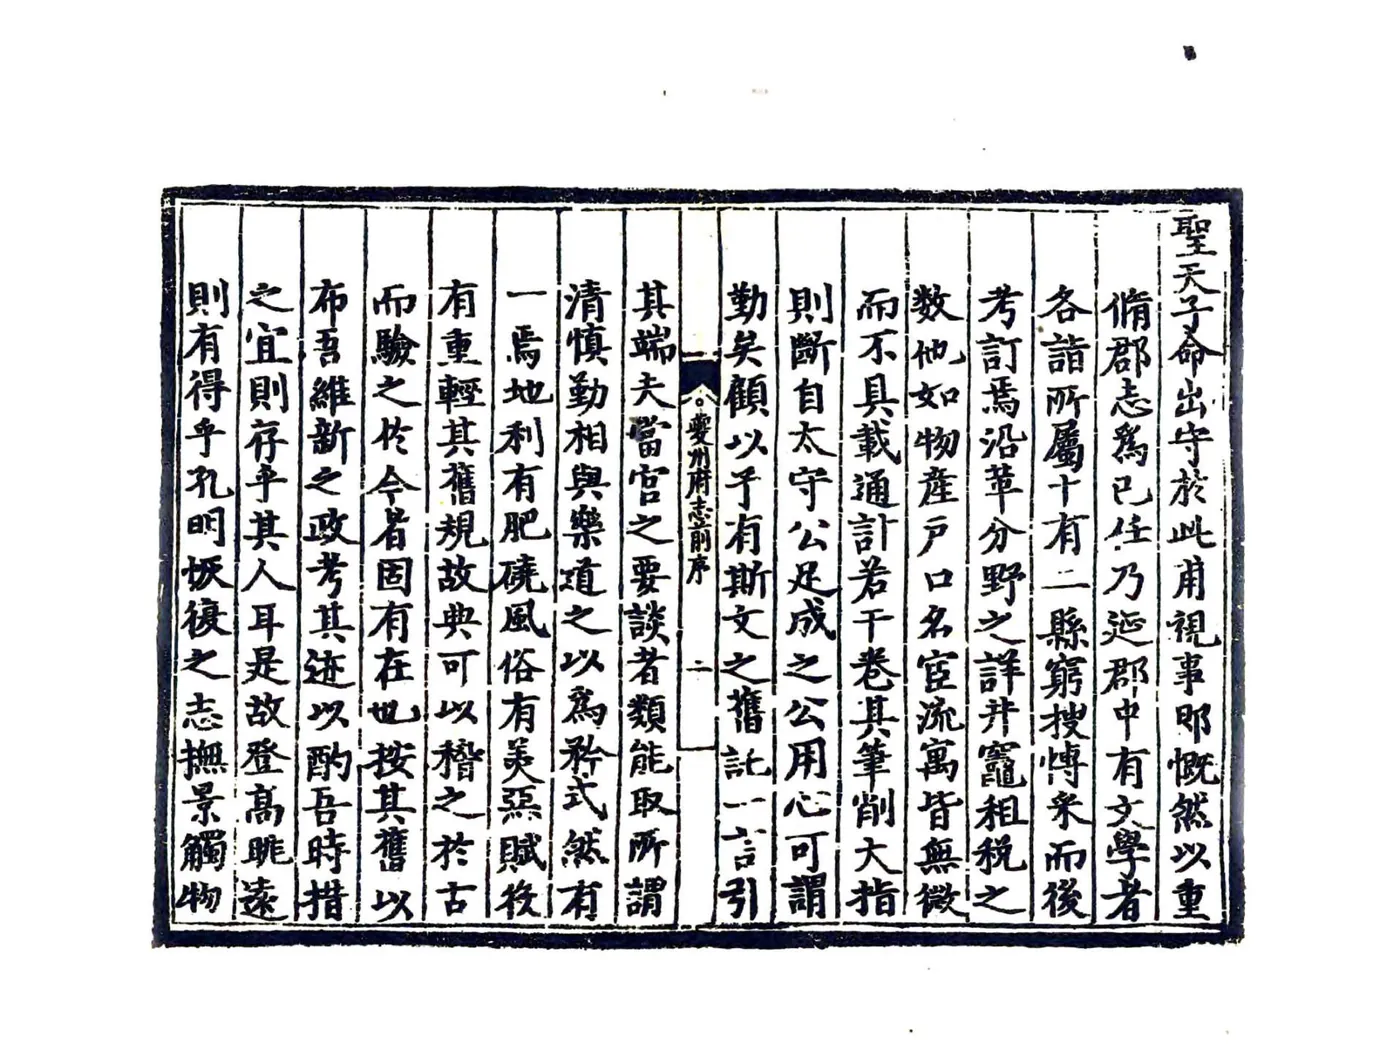 聖天子命出守於此甫視事即慨然以重
脩郡志爲己任乃延郡中有文學者
各詣所屬十有二縣窮搜愽采而後
考訂焉沿革分野之詳井竈租税之
数他如物産戸口名宦流寓皆無微
而不具載通計若干巻其筆削大指
則斷自太守公足成之公用心可謂
勤矣顧以予有斯文之舊託一言引
夔州府志前序
二
其端夫當官之要談者類能取所謂
清慎勤相與樂道之以爲矜式然有
一焉地利有肥磽風俗有美惡賦役
有重輕其舊規故典可以稽之於古
而驗之於今者固有在也按其舊以
布吾維新之政考其迹以酌吾時措
之宜則存乎其人耳是故登高眺遠
則有得乎孔明恢復之志撫景觸物